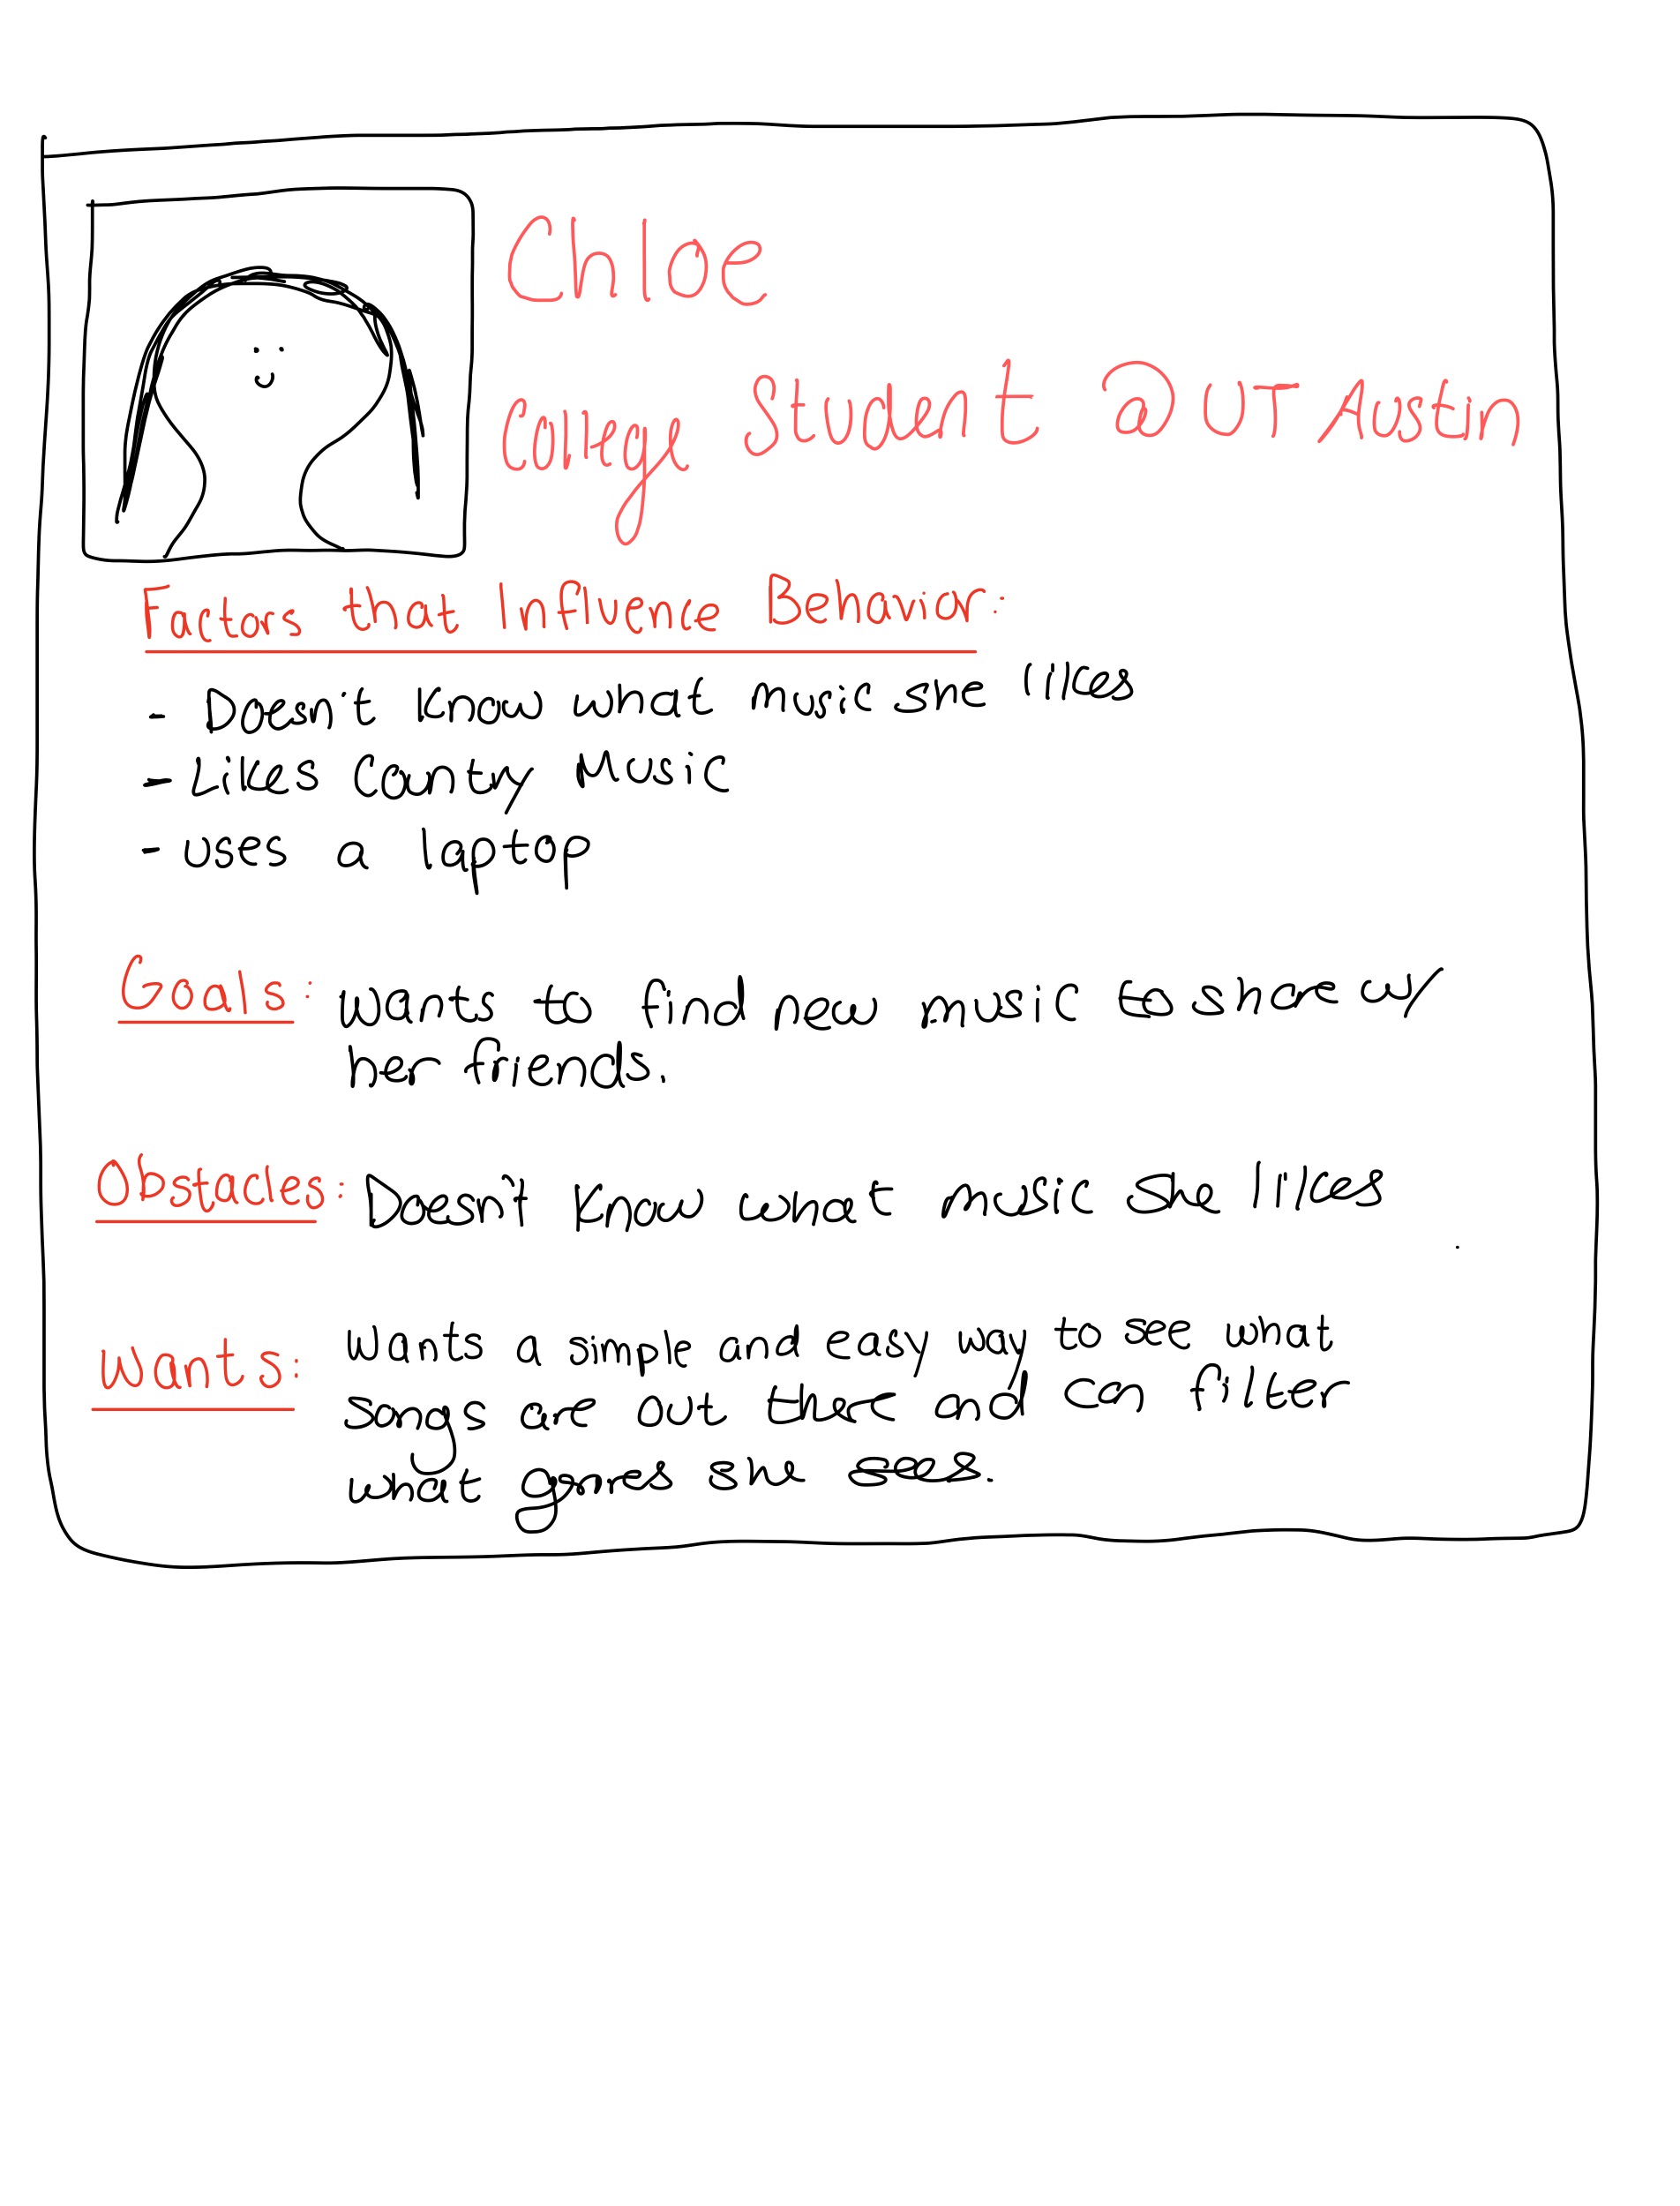 Chloe
College Student @ UT Austin
Factors that Influence Behavior:
- Doesn't know what music she likes
- Likes Country Music
- uses a laptop
Goals: Wants to find new music to share w/
her friends.
Obstacles: Doesn't know what music she likes
Wants: Wants a simple and easy way to see what
songs are out there and can filter
what genres she sees.